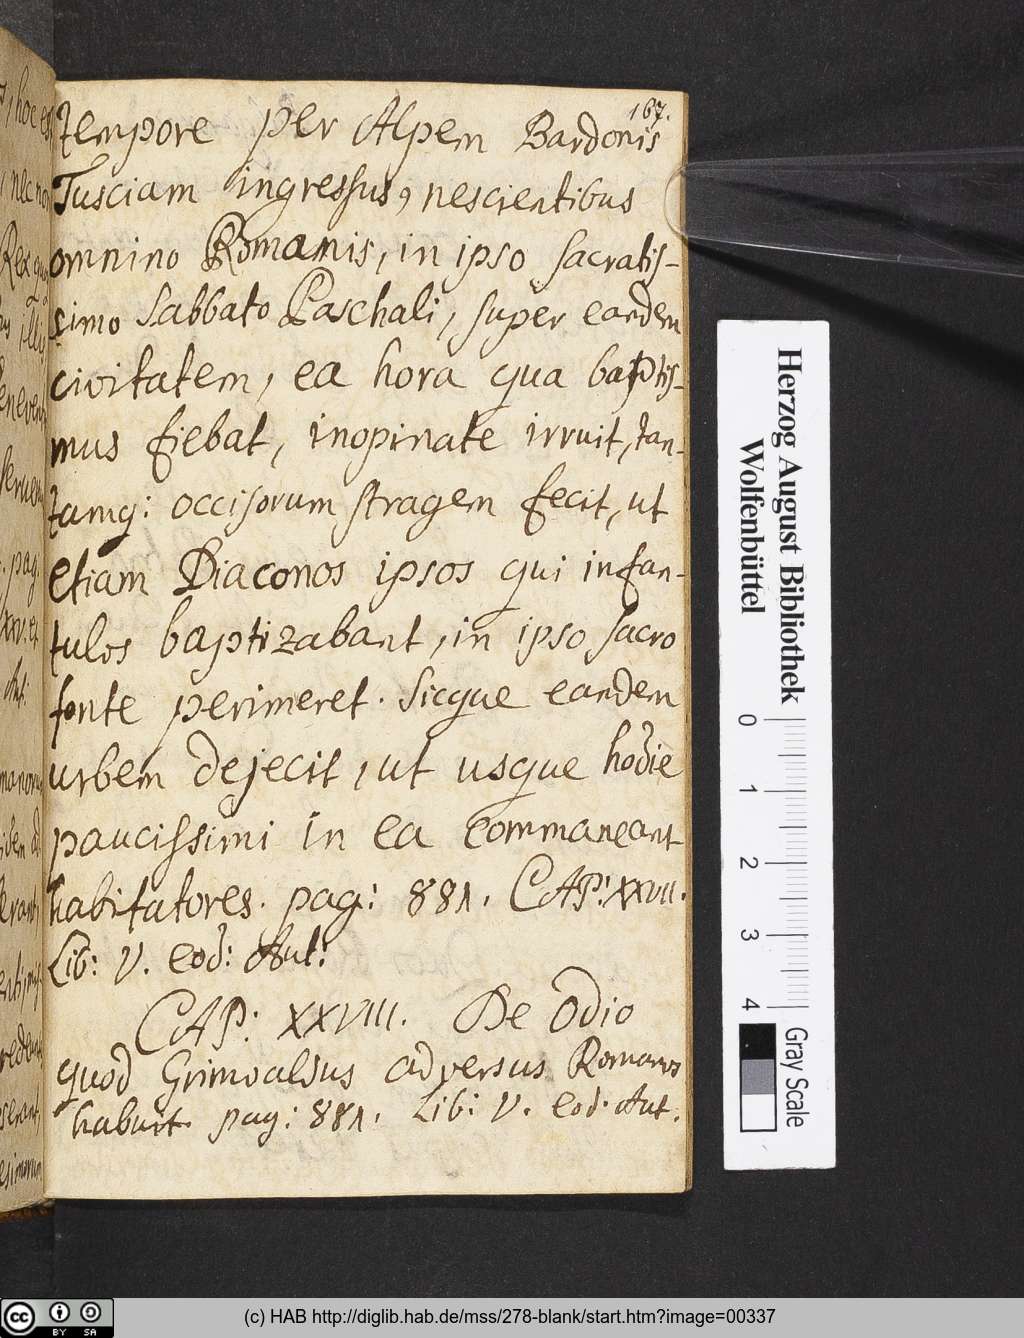 167.
tempore per Alpem Bardonis
Tusciam ingressus, nescientibus
omnino Romanis, in ipso sacratis-
simo Sabbato Paschali, super eandem
civitatem, ea hora qua baptis-
mus fiebat, inopinate irruit, tan-
tamq: occisorum stragem fecit, ut
etiam Diaconos ipsos qui infan-
tulos baptizabant, in ipso sacro
fonte perimeret. Sicque eandem
urbem dejecit, ut usque hodie
paucissimi in ea commaneant
habitatores. pag: 881. CAP: XXVII.
Lib: V. eod: Aut:
CAP: XXVIII. De Odio
quod Grimoaldus adversus Romanos
habuit. pag: 881. Lib: V. eod. Aut.
Herzog August Bibliothek
Wolfenbüttel
0 1 2 3 4
Gray Scale
cc BY SA
(c) HAB http://diglib.hab.de/mss/278-blank/start.htm?image=00337